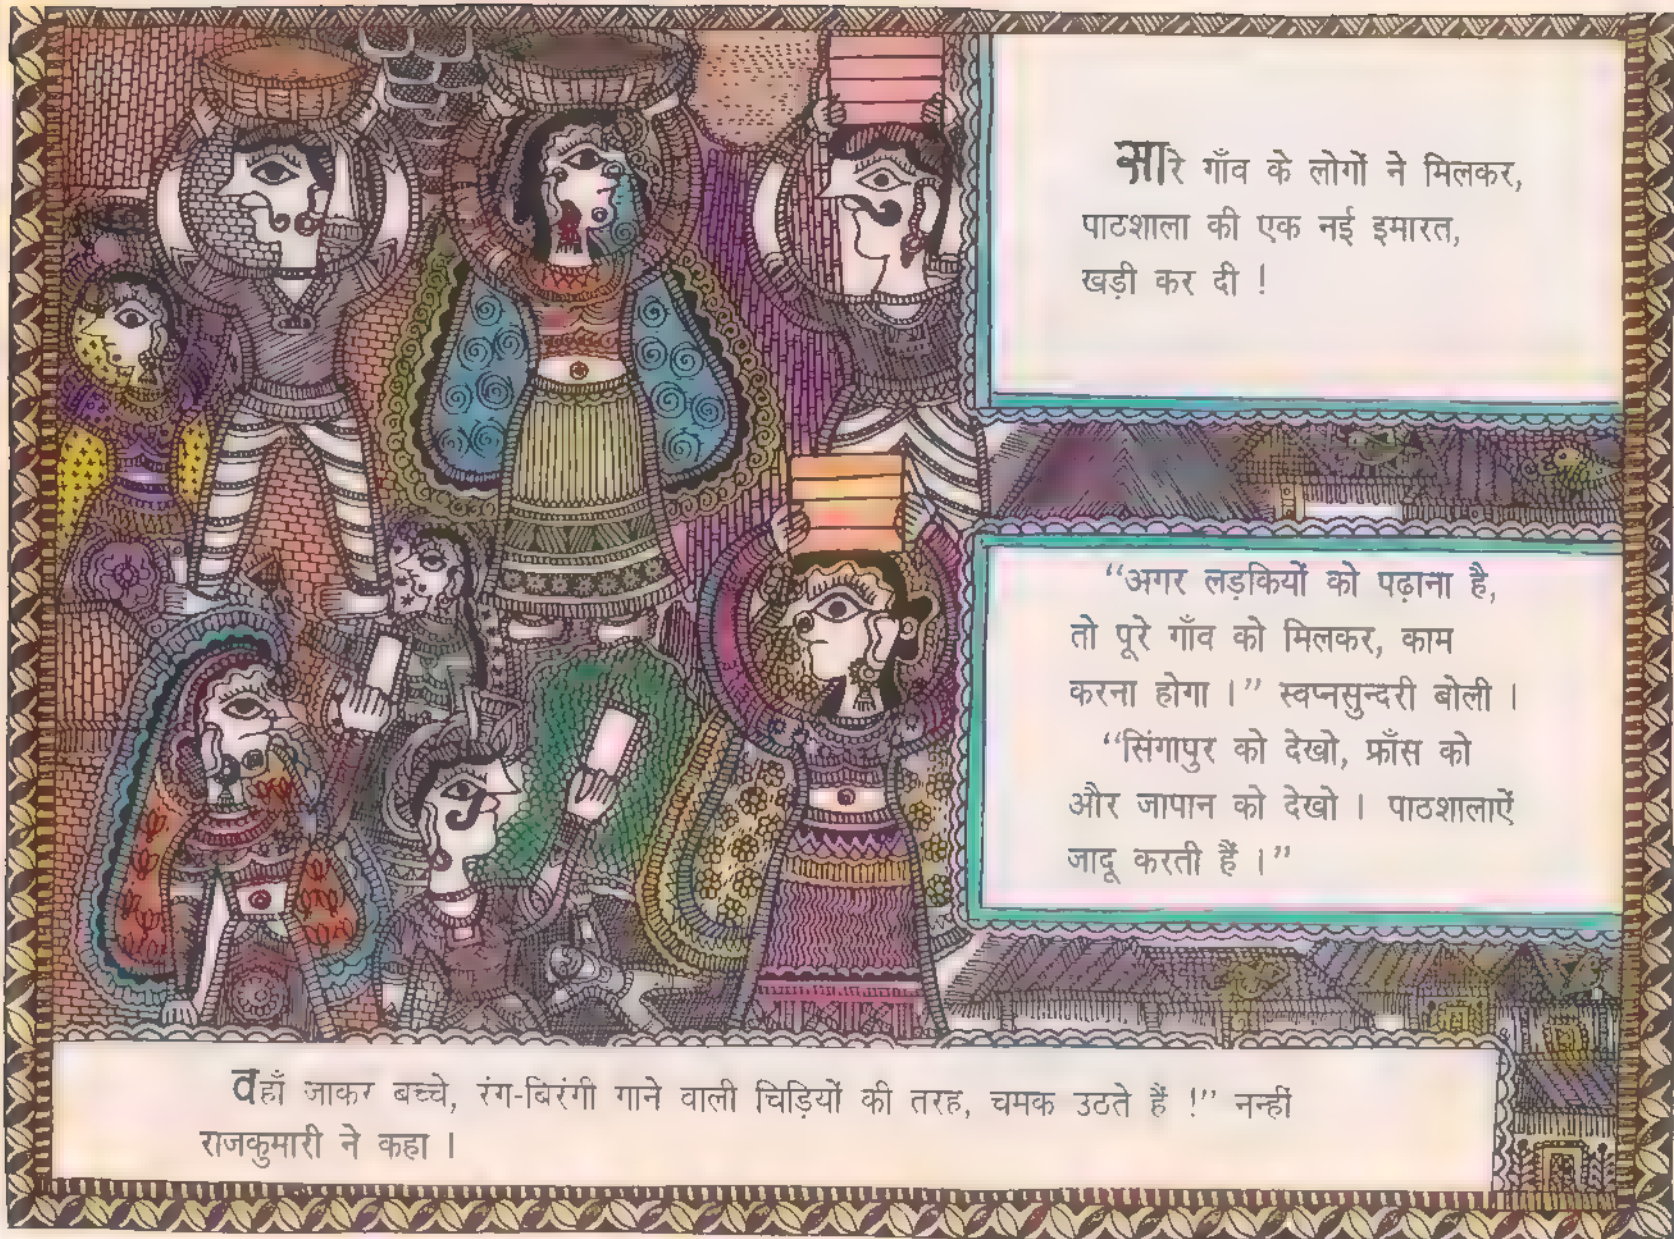 सारे गाँव के लोगों ने मिलकर,
पाठशाला की एक नई इमारत,
खड़ी कर दी !
“अगर लड़कियों को पढ़ाना है,
तो पूरे गाँव को मिलकर, काम
करना होगा ।” स्वप्नसुन्दरी बोली ।
“सिंगापुर को देखो, फ्राँस को
और जापान को देखो । पाठशालाऐं
जादू करती हैं ।”
वहाँ जाकर बच्चे, रंग-बिरंगी गाने वाली चिड़ियों की तरह, चमक उठते हैं !” नन्हीं
राजकुमारी ने कहा ।